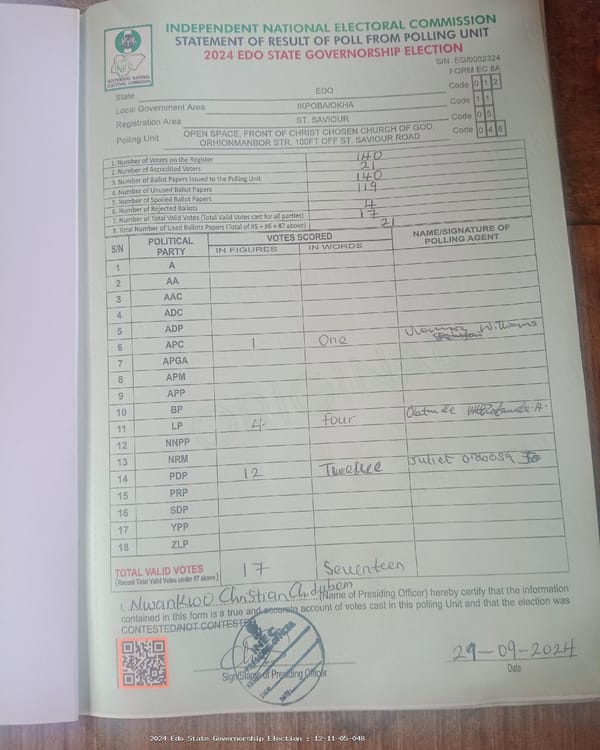 INDEPENDENT NATIONAL ELECTORAL COMMISSION
STATEMENT OF RESULT OF POLL FROM POLLING UNIT
2024 EDO STATE GOVERNORSHIP ELECTION
INEC
INDEPENDENT NATIONAL ELECTORAL COMMISSION
S/N: EG/0002324
FORM EC 8A
State EDO Code 0 1 2
Local Government Area IKPOBA/OKHA Code 1 1
Registration Area ST. SAVIOUR Code 0 5
Polling Unit OPEN SPACE, FRONT OF CHRIST CHOSEN CHURCH OF GOD, ORHIONMANBOR STR, 100FT OFF ST. SAVIOUR ROAD Code 0 4 8
1. Number of Voters on the Register 140
2. Number of Accredited Voters 21
3. Number of Ballot Papers Issued to the Polling Unit 140
4. Number of Unused Ballot Papers 119
5. Number of Spoiled Ballot Papers
6. Number of Rejected Ballots 4
7. Number of Total Valid Votes (Total Valid Votes cast for all parties) 17
8. Total Number of Used Ballots Papers (Total of #5 + #6 + #7 above) 21
S/N POLITICAL PARTY VOTES SCORED NAME/SIGNATURE OF POLLING AGENT
IN FIGURES IN WORDS
1 A
2 AA
3 AAC
4 ADC
5 ADP
6 APC 1 One Williams
7 APGA
8 APM
9 APP
10 BP
11 LP 4 Four
12 NNPP
13 NRM
14 PDP 12 Twelve Juliet
15 PRP
16 SDP
17 YPP
18 ZLP
TOTAL VALID VOTES 17 Seventeen
(Record Total Valid Votes under #7 above)
I, Nwankwo Christian Chidubem (Name of Presiding Officer) hereby certify that the information
contained in this form is a true and accurate account of votes cast in this polling Unit and that the election was
CONTESTED/NOT CONTESTED
INEC
Sign/Stamp of Presiding Officer
29-09-2024
Date
2024 Edo State Governorship Election : 12-11-05-048